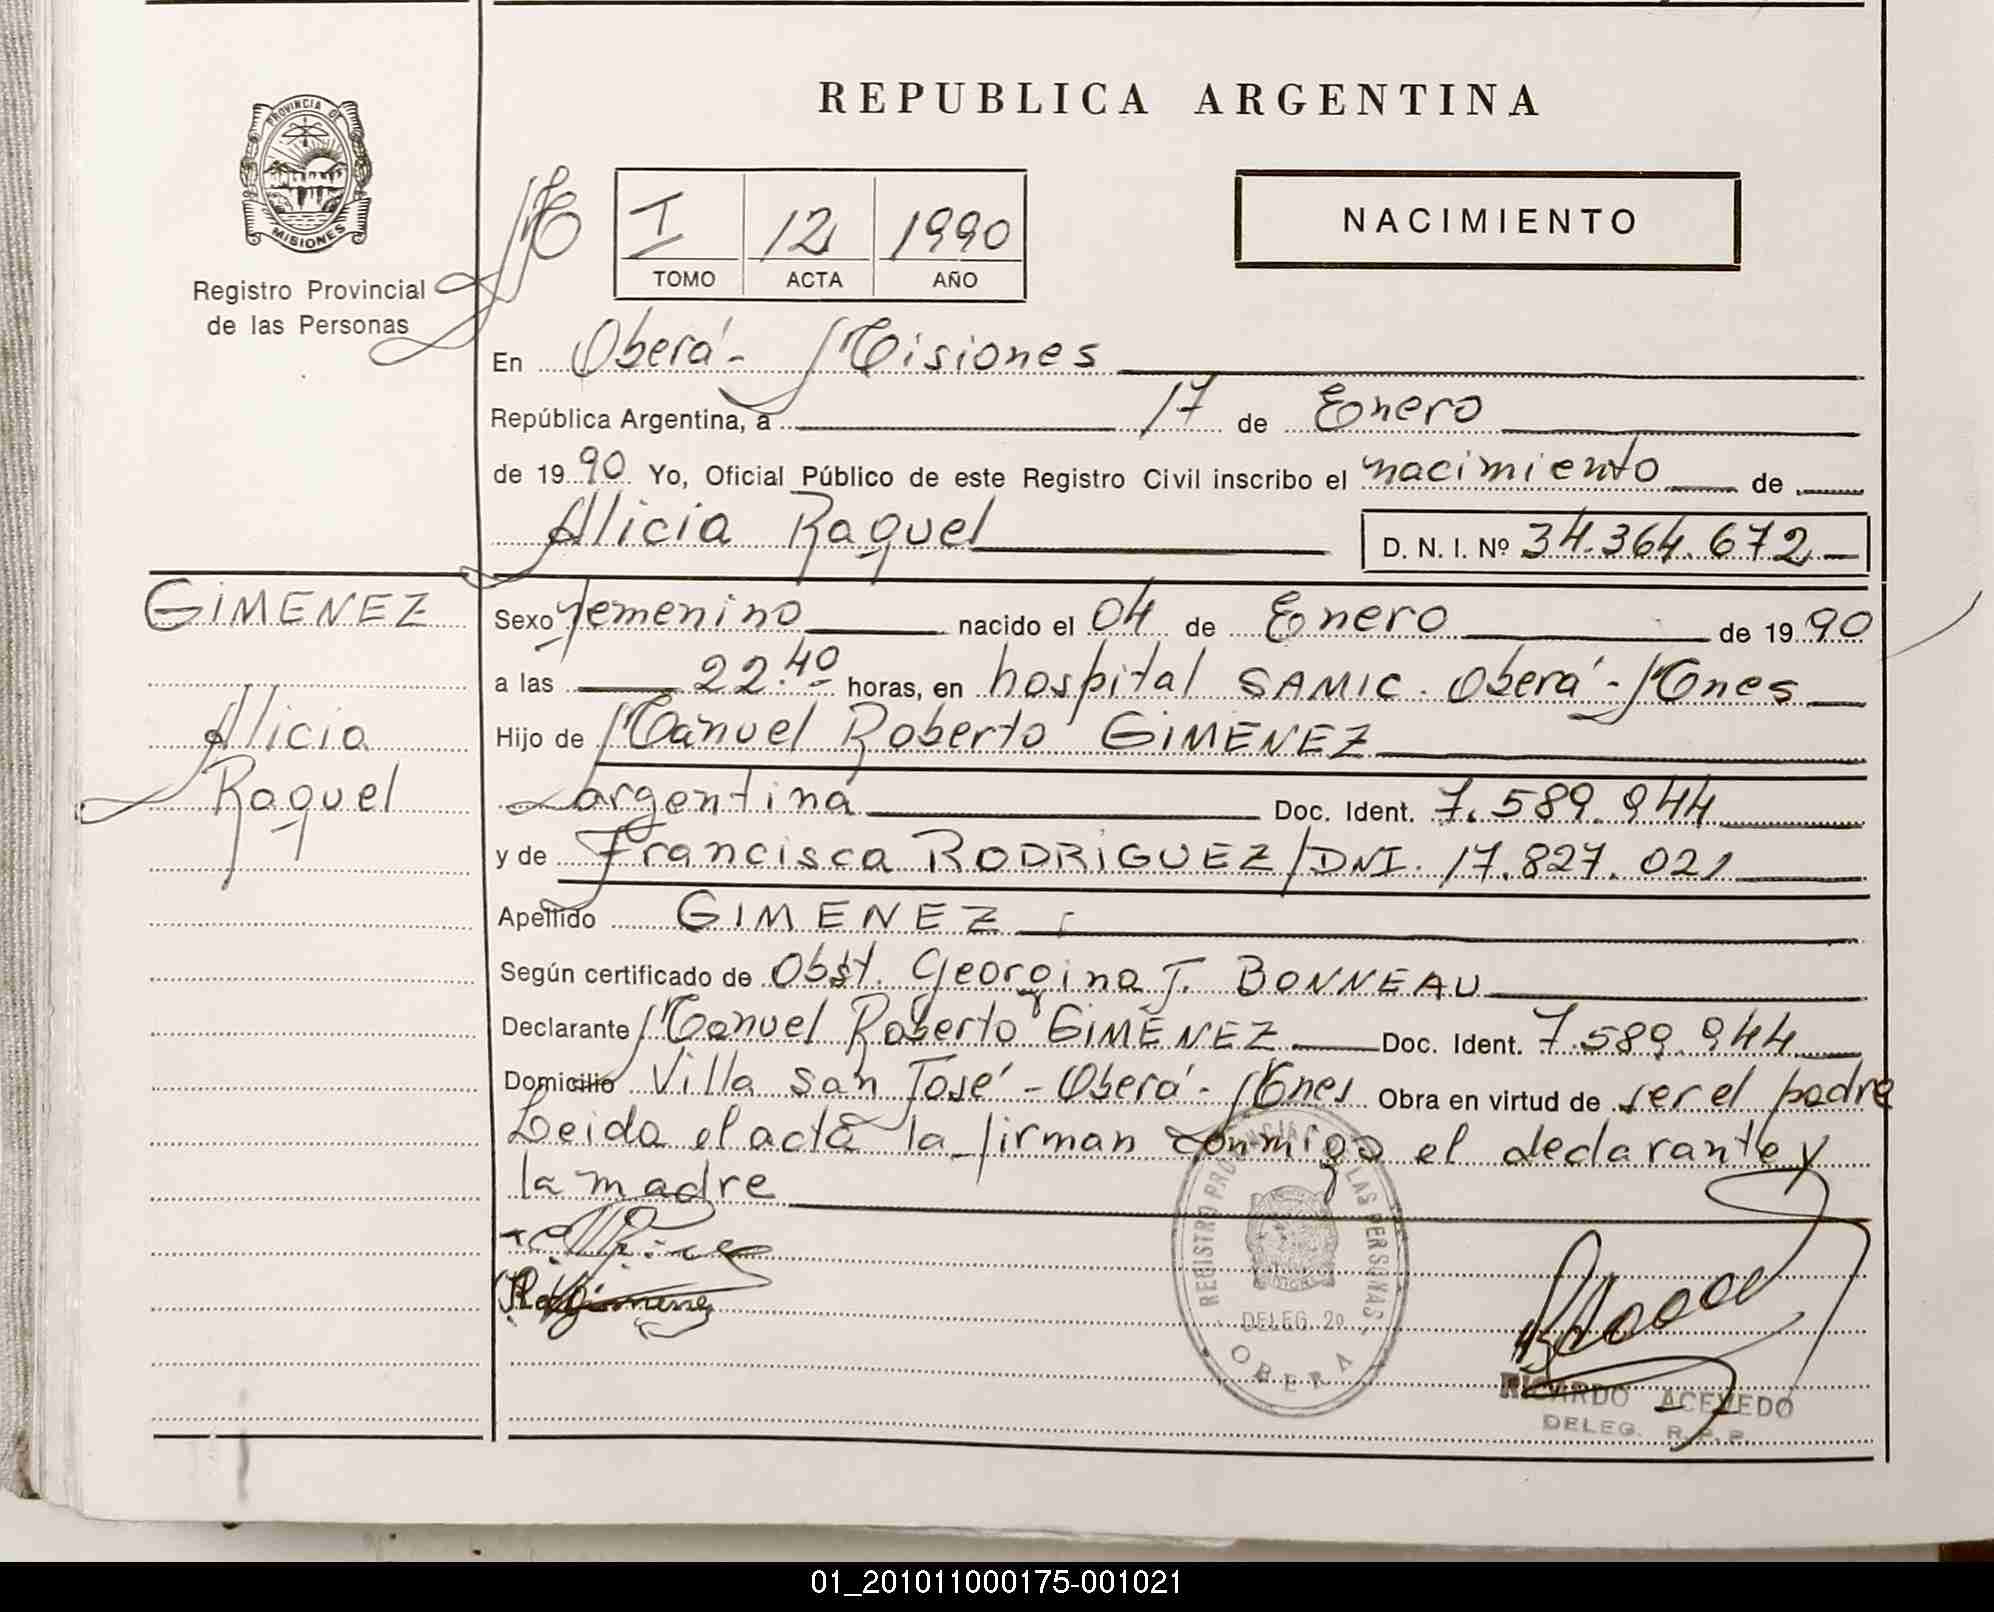 REPUBLICA ARGENTINA
PROVINCIA DE
MISIONES
Registro Provincial
de las Personas
I 12 1990
TOMO ACTA AÑO
NACIMIENTO
En Oberá - Misiones
República Argentina, a 17 de Enero
de 1990 Yo, Oficial Público de este Registro Civil inscribo el nacimiento de
Alicia Raquel D. N. I. Nº 34.364.672
GIMENEZ
Alicia
Raquel
Sexo femenino nacido el 04 de Enero de 1990
a las 22.40 horas, en hospital SAMIC. Oberá - Mnes
Hijo de Manuel Roberto GIMENEZ
argentina Doc. Ident. 7.589.944
y de Francisca RODRIGUEZ / DNI. 17.827.021
Apellido GIMENEZ
Según certificado de Obst. Georgina J. BONNEAU
Declarante Manuel Roberto GIMENEZ Doc. Ident. 7.589.944
Domicilio Villa San José - Oberá - Mnes Obra en virtud de ser el padre
Leida el acta la firman conmigo el declarante y
la madre
REGISTRO PROVINCIAL LAS PERSONAS
DELEG. 2º
OBERA
RICARDO ACEVEDO
DELEG. R.P.P.
01_201011000175-001021